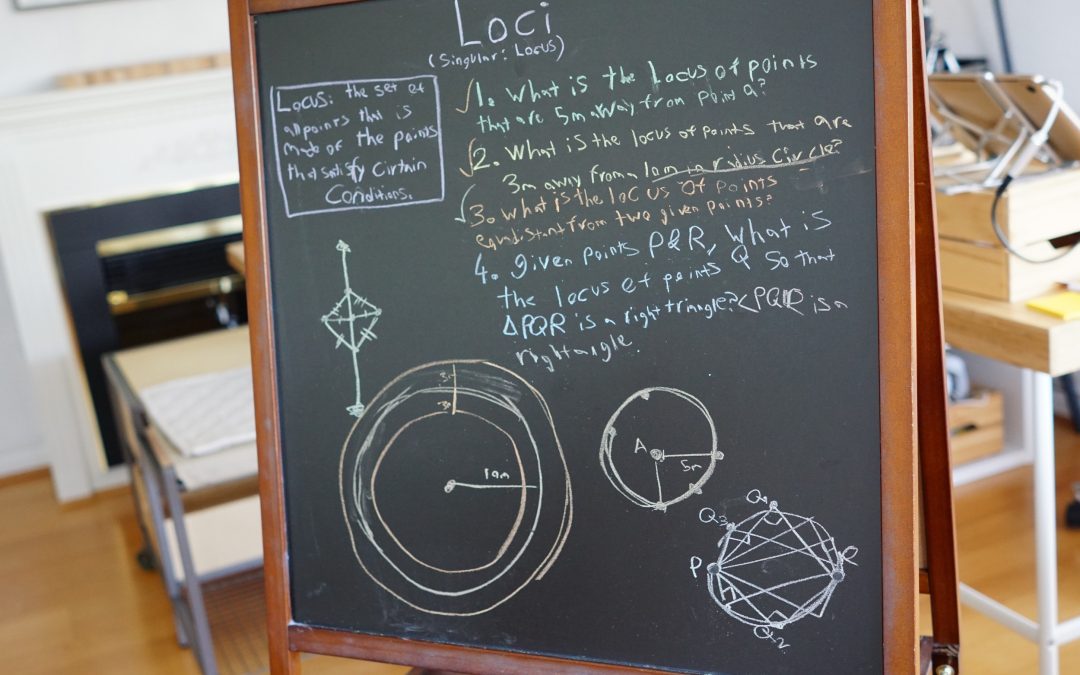 Loci
(Singular: Locus)
Locus: the set of
all points that is
made of the points
that satisfy Cirtain
Conditions.
1. What is the locus of points
that are 5m away from point a?
2. What is the locus of points that are
3m away from a 10m in radius circle?
3. What is the locus of points
equidistant from two given points?
4. given points P&R, what is
the locus of points Q so that
△PQR is a right triangle? <PQR is a
right angle.
3m
3m
10m
A
5m
Q1
Q3
P
R
Q2